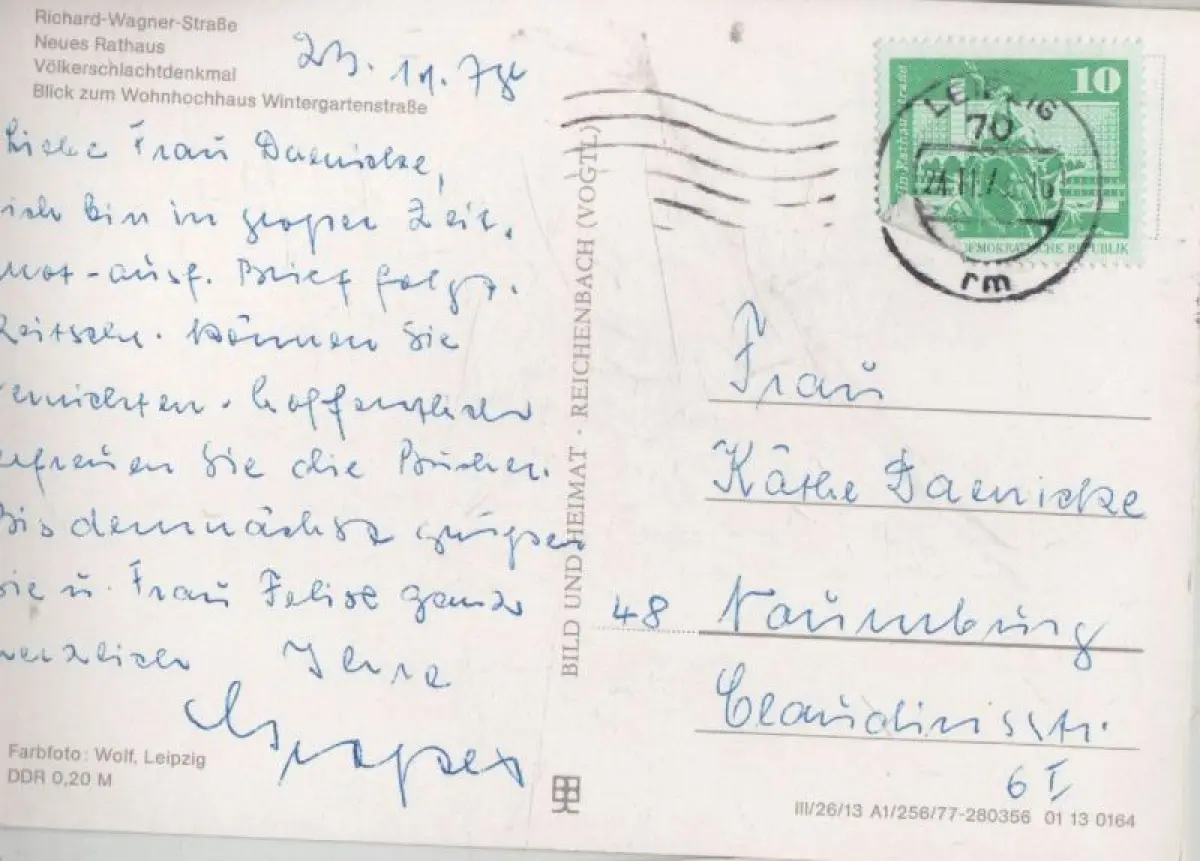 Richard-Wagner-Straße
Neues Rathaus
Völkerschlachtdenkmal
Blick zum Wohnhochhaus Wintergartenstraße
23. 11. 78
Liebe Frau Daenicke,
ich bin in großer Zeit-
not - ausf. Brief folgt.
Zeitschr. können Sie
vernichten. Hoffentlich
erfreuen Sie die Bücher.
Bis demnächst grüßen
Sie u. Frau Felise ganz
herzlich Ihre
Farbfoto: Wolf, Leipzig
DDR 0,20 M
BILD UND HEIMAT · REICHENBACH (VOGTL)
10
LEIPZIG
70
24.11.7
rm
DEMOKRATISCHE REPUBLIK
Frau
Käthe Daenicke
48 Naumburg
Claudiusstr.
6 I
III/26/13 A1/256/77-280356 01 13 0164